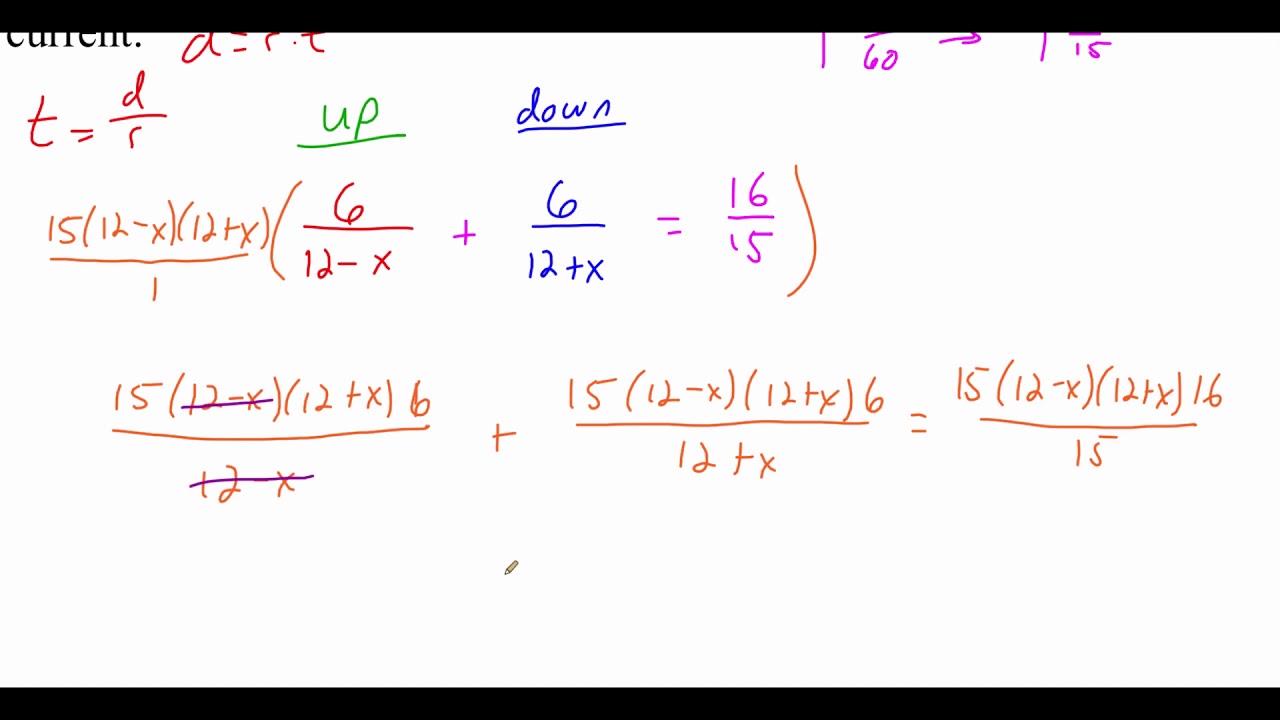 current. d = r · t
1 /60 → 1 /15
t = d/r up down
15(12-x)(12+x)/1 ( 6/(12-x) + 6/(12+x) = 16/15 )
15(12-x)(12+x)6/(12-x) + 15(12-x)(12+x)6/(12+x) = 15(12-x)(12+x)16/15